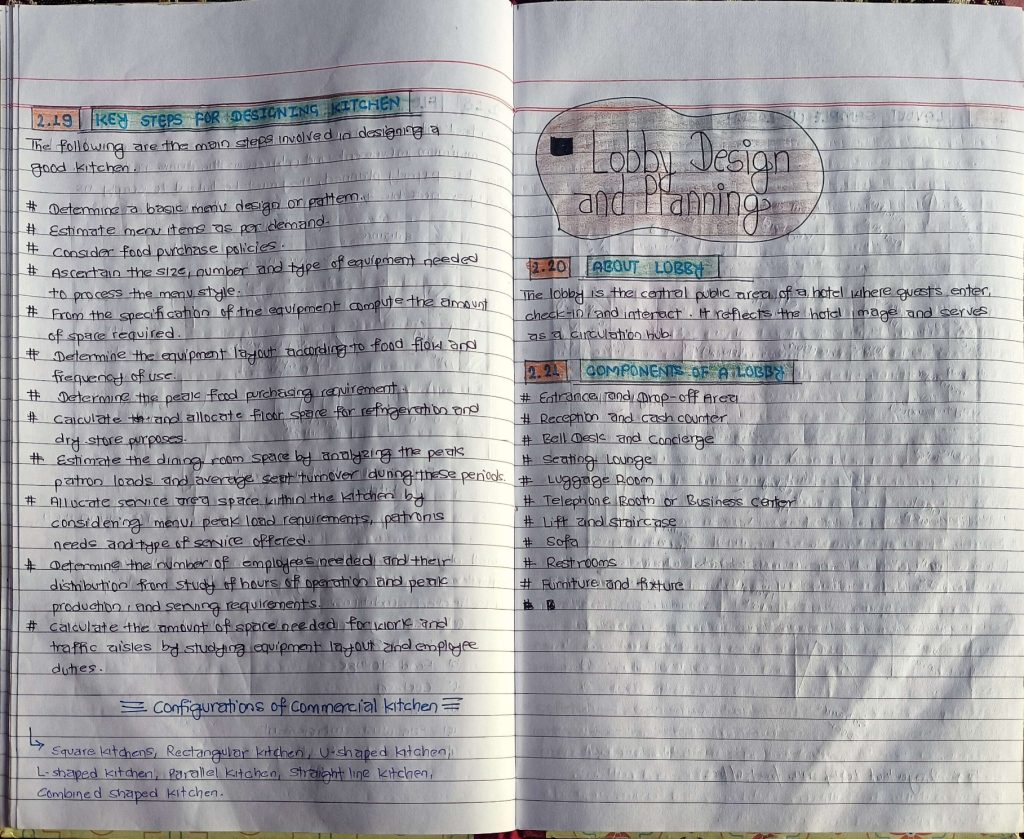 2.19 KEY STEPS FOR DESIGNING KITCHEN
The following are the main steps involved in designing a
good kitchen.
# Determine a basic menu design or pattern.
# Estimate menu items as per demand.
# Consider food purchase policies.
# Ascertain the size, number and type of equipment needed
to process the menu style.
# From the specification of the equipment compute the amount
of space required.
# Determine the equipment layout according to food flow and
frequency of use.
# Determine the peak food purchasing requirement.
# Calculate and allocate floor space for refrigeration and
dry store purposes.
# Estimate the dining room space by analyzing the peak
patron loads and average seat turnover during these periods.
# Allocate service area space within the kitchen by
considering menu, peak load requirements, patronis
needs and type of service offered.
# Determine the number of employees needed and their
distribution from study of hours of operation and peak
production, and serving requirements.
# Calculate the amount of space needed for work and
traffic aisles by studying equipment layout and employee
duties.
Configurations of Commercial kitchen
↳ Square kitchens, Rectangular kitchen, U-shaped kitchen,
L-shaped kitchen, Parallel kitchen, Straight line kitchen,
Combined shaped kitchen.
Lobby Design
and Planning
2.20 ABOUT LOBBY
The lobby is the central public area of a hotel where guests enter,
check-in, and interact. It reflects the hotel image and serves
as a circulation hub.
2.21 COMPONENTS OF A LOBBY
# Entrance and Drop-off Area
# Reception and cash counter
# Bell Desk and Concierge
# Seating Lounge
# Luggage Room
# Telephone Booth or Business Center
# Lift and staircase
# Sofa
# Restrooms
# Furniture and fixture
#